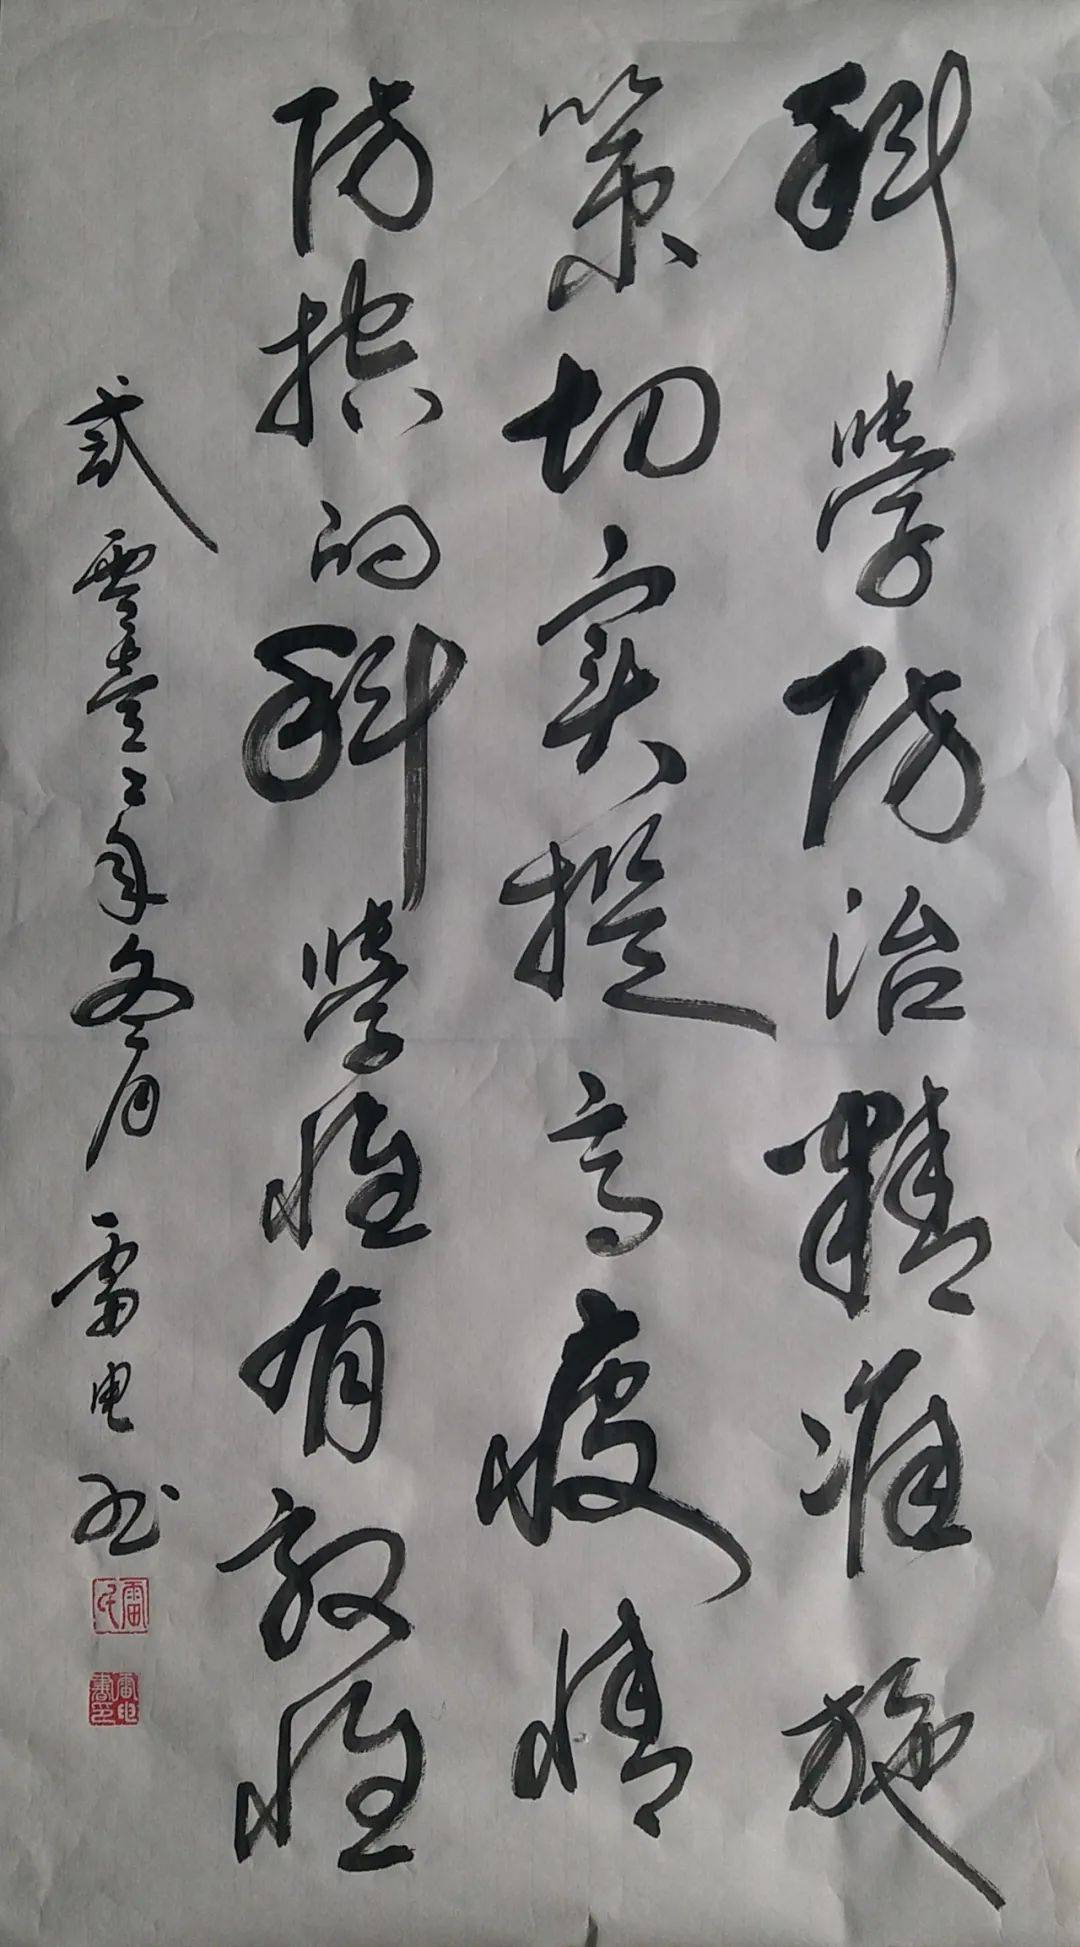 科學防治精准施
策切实提高疫情
防控的科學性有效性
贰零壹二年冬月雷电书
雷氏
雷电書印